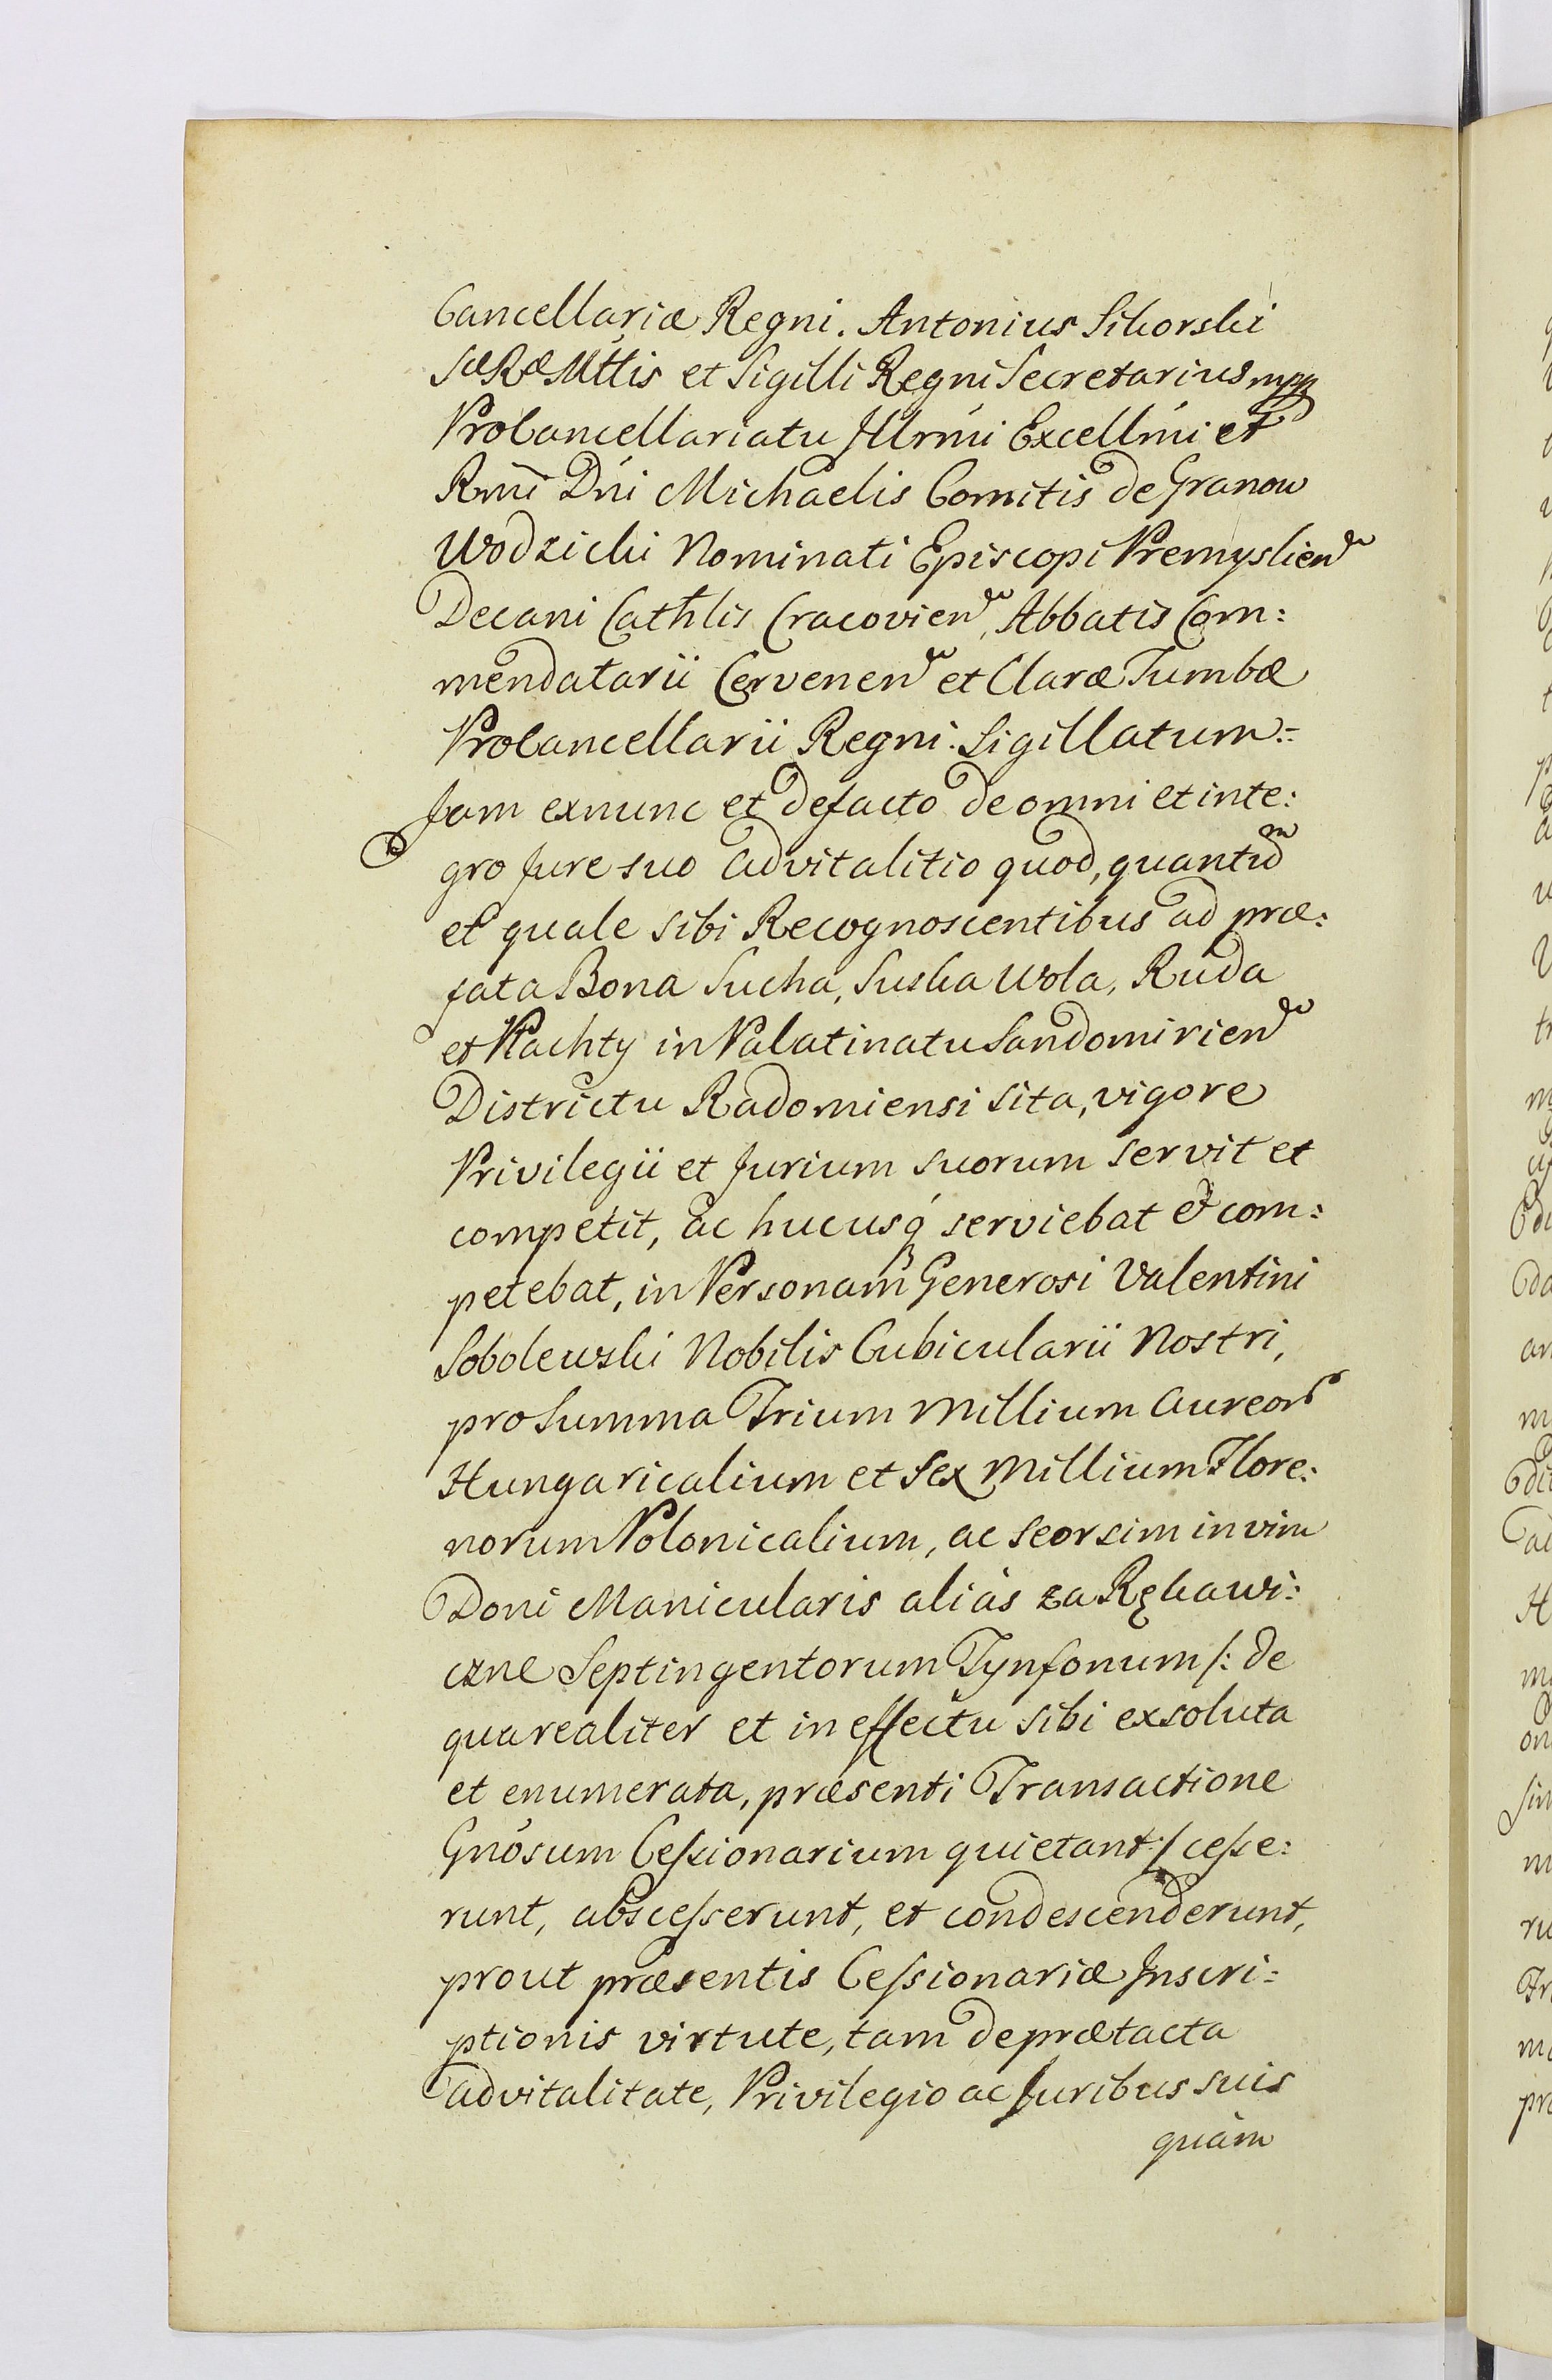 Cancellariæ Regni. Antonius Sikorski
SæRæMttis et Sigilli Regni Secretarius mpp
Procancellariatu Illrmi Excellmi et
Rmi Dni Michaelis Comitis de Granow
Wodzicki Nominati Episcopi Premyslien
Decani Cathlis Cracovien, Abbatis Com:
mendatarii Cervenen et Claræ Tumbæ
Procancellarii Regni. Sigillatum.=
Jam exnunc et defacto de omni et inte:
gro Jure suo advitalitio quod, quantum
et quale sibi Recognoscentibus ad præ:
fata Bona Sucha, Suska Wola, Ruda
et Płachty in Palatinatu Sandomirien
Districtu Radomiensi sita, vigore
Privilegii et Jurium suorum servit et
competit, ac hucusq́ serviebat et com:
petebat, in Personam Generosi Valentini
Sobolewski Nobilis Cubicularii Nostri,
pro Summa Trium Millium Aureor
Hungaricalium et Sex Millium Flore:
norum Polonicalium, ac seorsim in vim
Doni Manicularis aliàs za Rękawi:
czne Septingentorum Tynfonum /: de
qua realiter et in effectu sibi exsoluta
et enumerata, præsenti Transactione
Gnosum Cessionarium quietant :/ cesse:
runt, abscesserunt, et condescenderunt,
prout præsentis Cessionariæ Inscri:
ptionis virtute, tam de prætacta
advitalitate, Privilegio ac Juribus suis
quàm